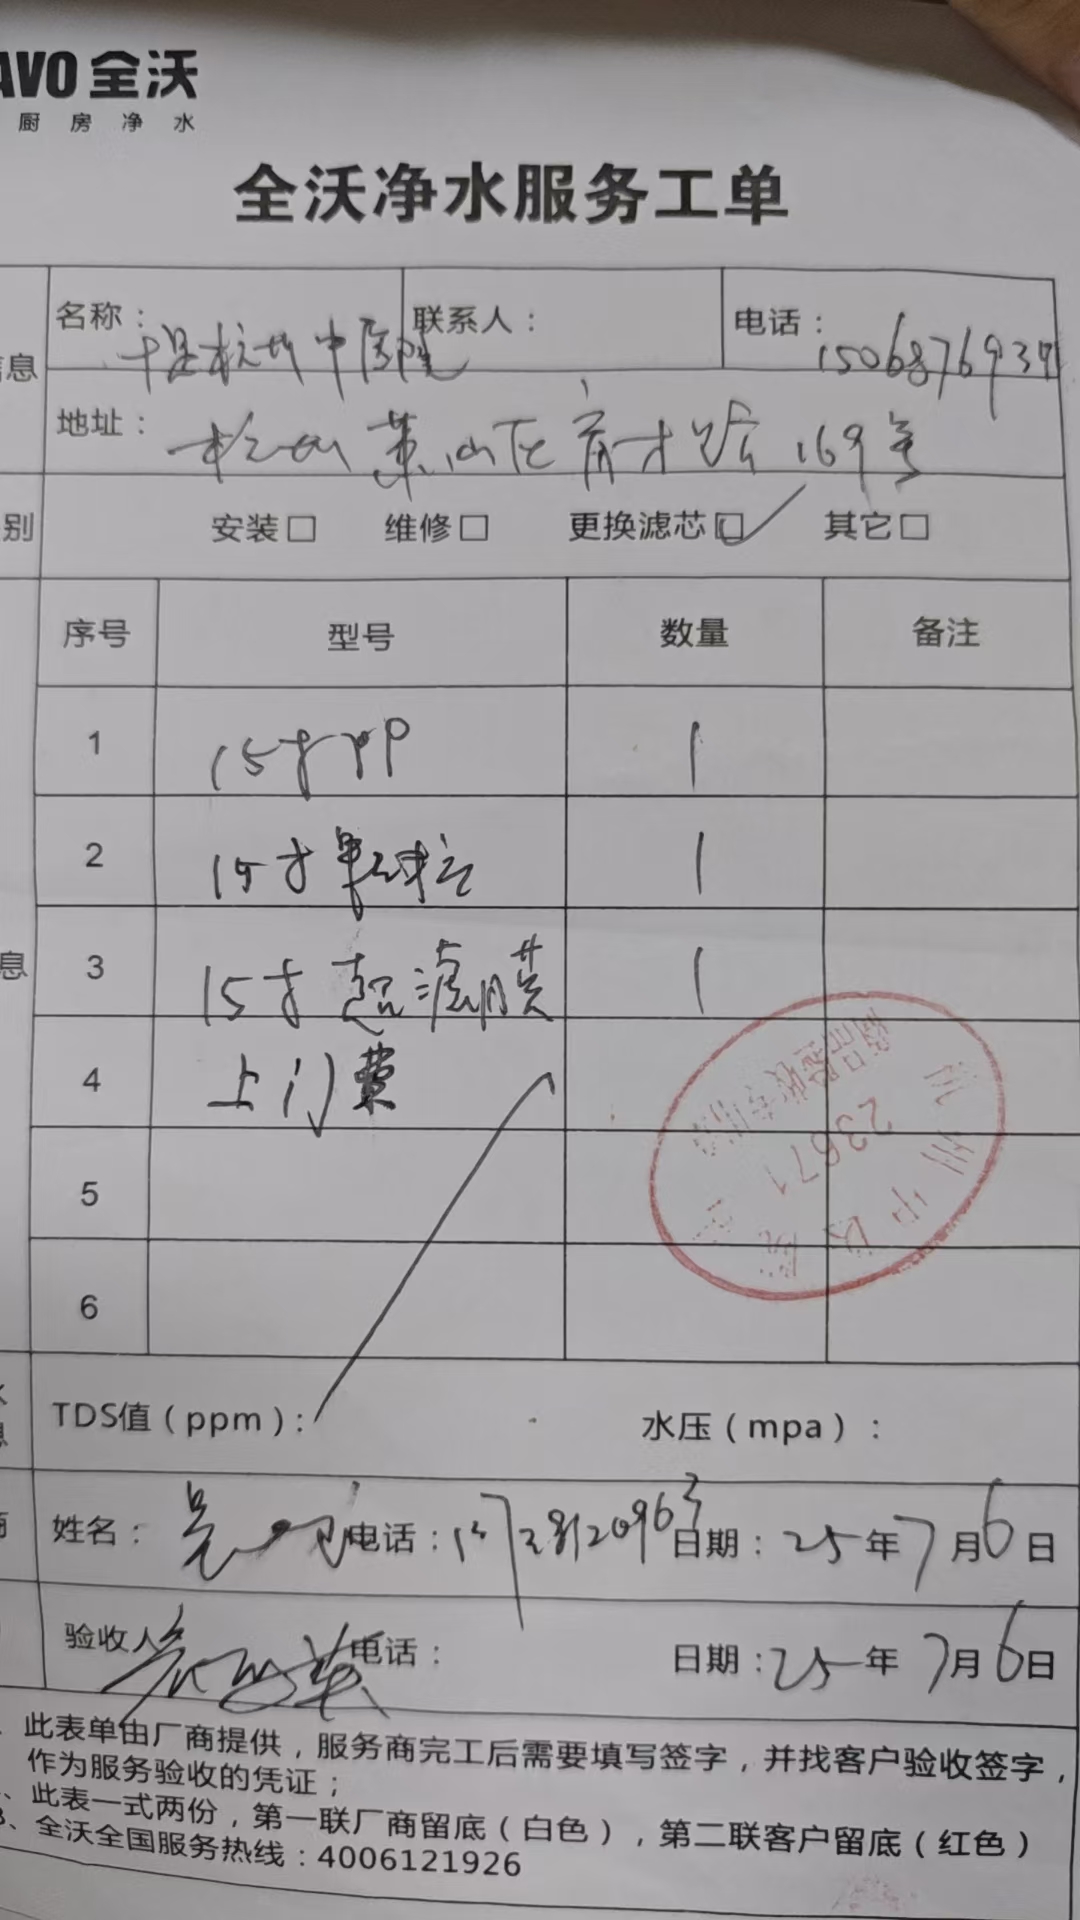 AVO 全沃
厨房净水
全沃净水服务工单
息
名称： 杭州中医院
联系人：
电话：
地址： 杭州萧山区育才路169号
别
安装□ 维修□ 更换滤芯□ 其它□
序号 型号 数量 备注
1 15寸PP 1
2 15寸颗粒 1
息
3 15寸超滤膜 1
4 上门费
5
6
23671
TDS值（ppm）：
水压（mpa）：
姓名： 电话： 日期：25年7月6日
验收人 电话： 日期：25年7月6日
此表单由厂商提供，服务商完工后需要填写签字，并找客户验收签字，
作为服务验收的凭证；
、此表一式两份，第一联厂商留底（白色），第二联客户留底（红色）
3、全沃全国服务热线：4006121926